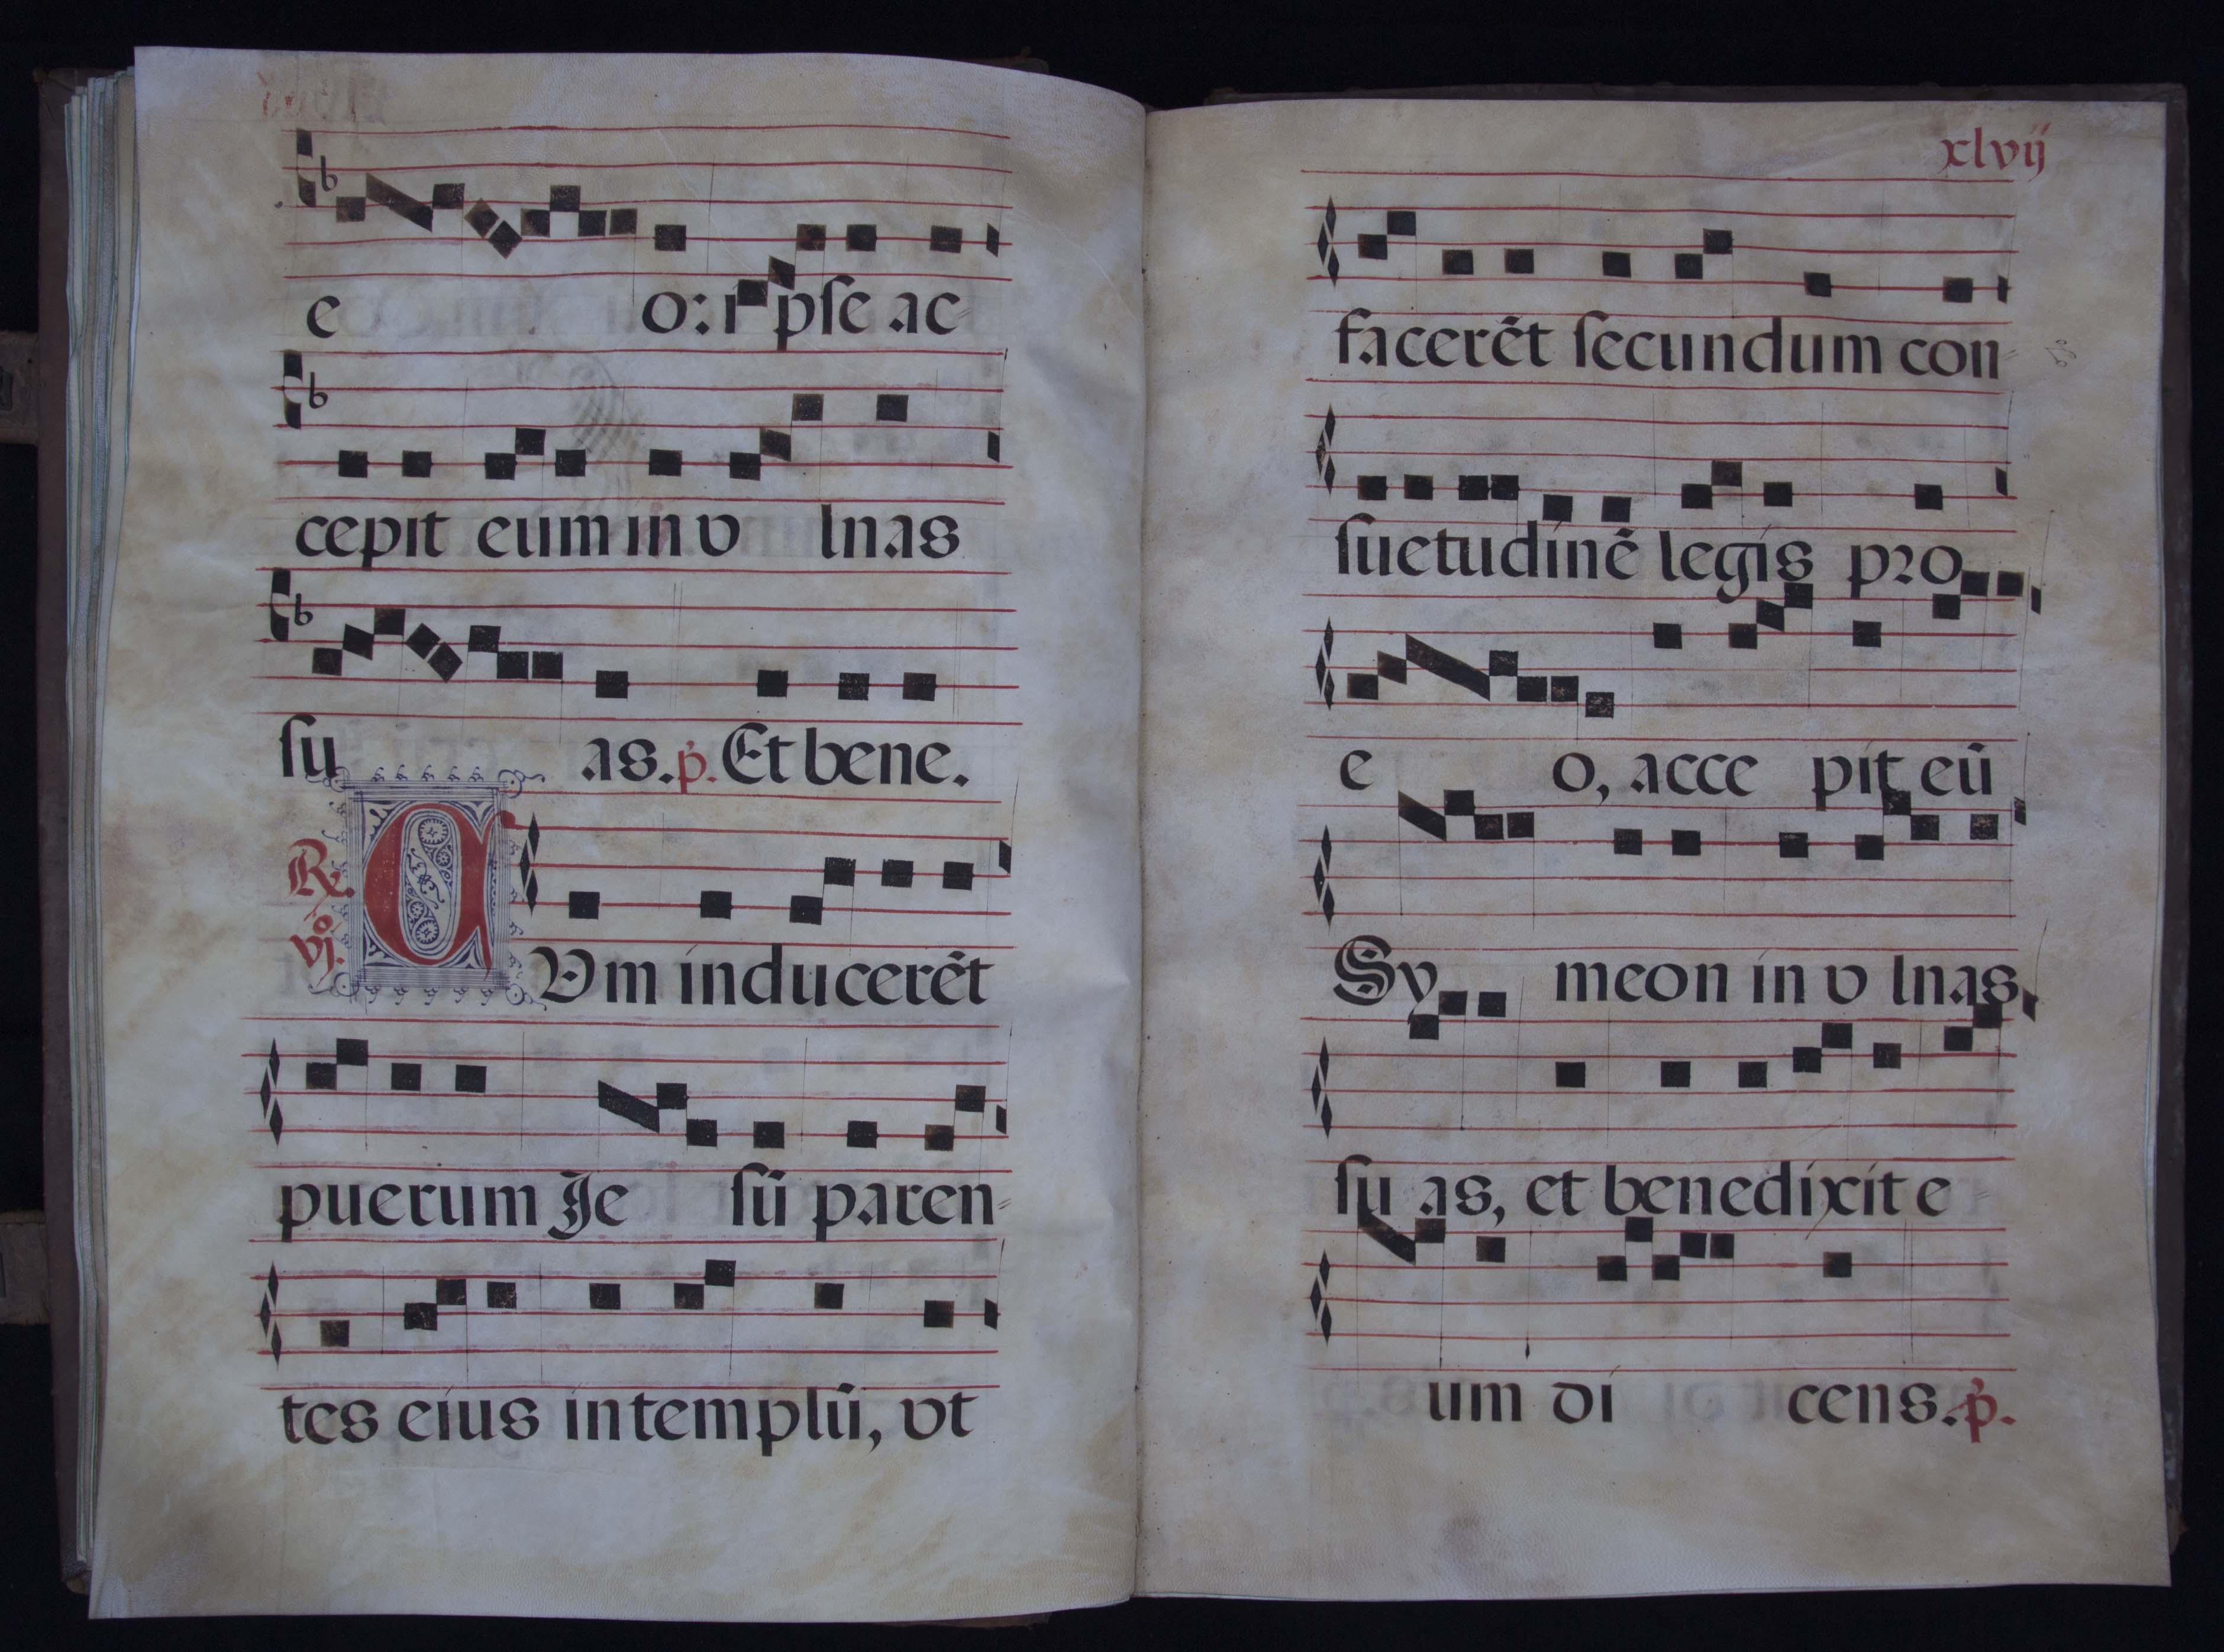 e o: i pſe ac=
cepit eum in v lnas
ſu as. p̃. Et bene.
R. vjº. CVm inducerēt
puerum Je ſū paren=
tes eius in templū, vt
xlvij
facerēt ſecundum con=
ſuetudinē legis pro
e o, acce pit eū
Sy meon in v lnas
ſu as, et benedixit e
um di cens. p̃.